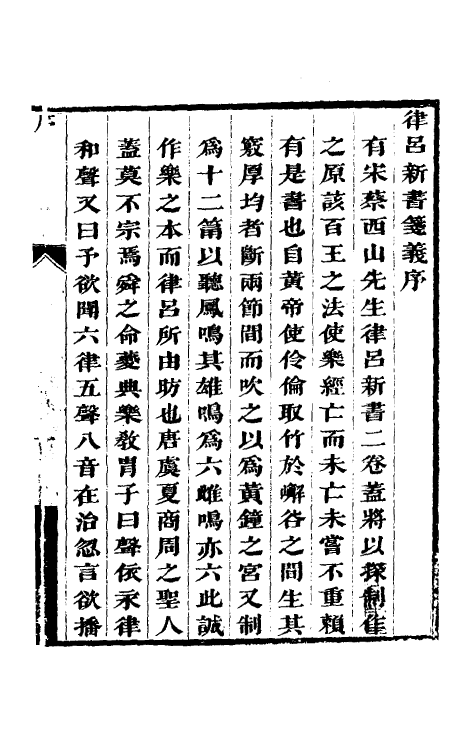 律呂新書箋義序
有宋蔡西山先生律呂新書二卷蓋將以探制作
之原該百王之法使樂經亡而未亡未嘗不重賴
有是書也自黃帝使伶倫取竹於嶰谷之間生其
竅厚均者斷兩節間而吹之以爲黃鐘之宮又制
爲十二筩以聽鳳鳴其雄鳴爲六雌鳴亦六此誠
作樂之本而律呂所由昉也唐虞夏商周之聖人
蓋莫不宗焉舜之命夔典樂敎胄子曰聲依永律
和聲又曰予欲聞六律五聲八音在治忽言欲播
序